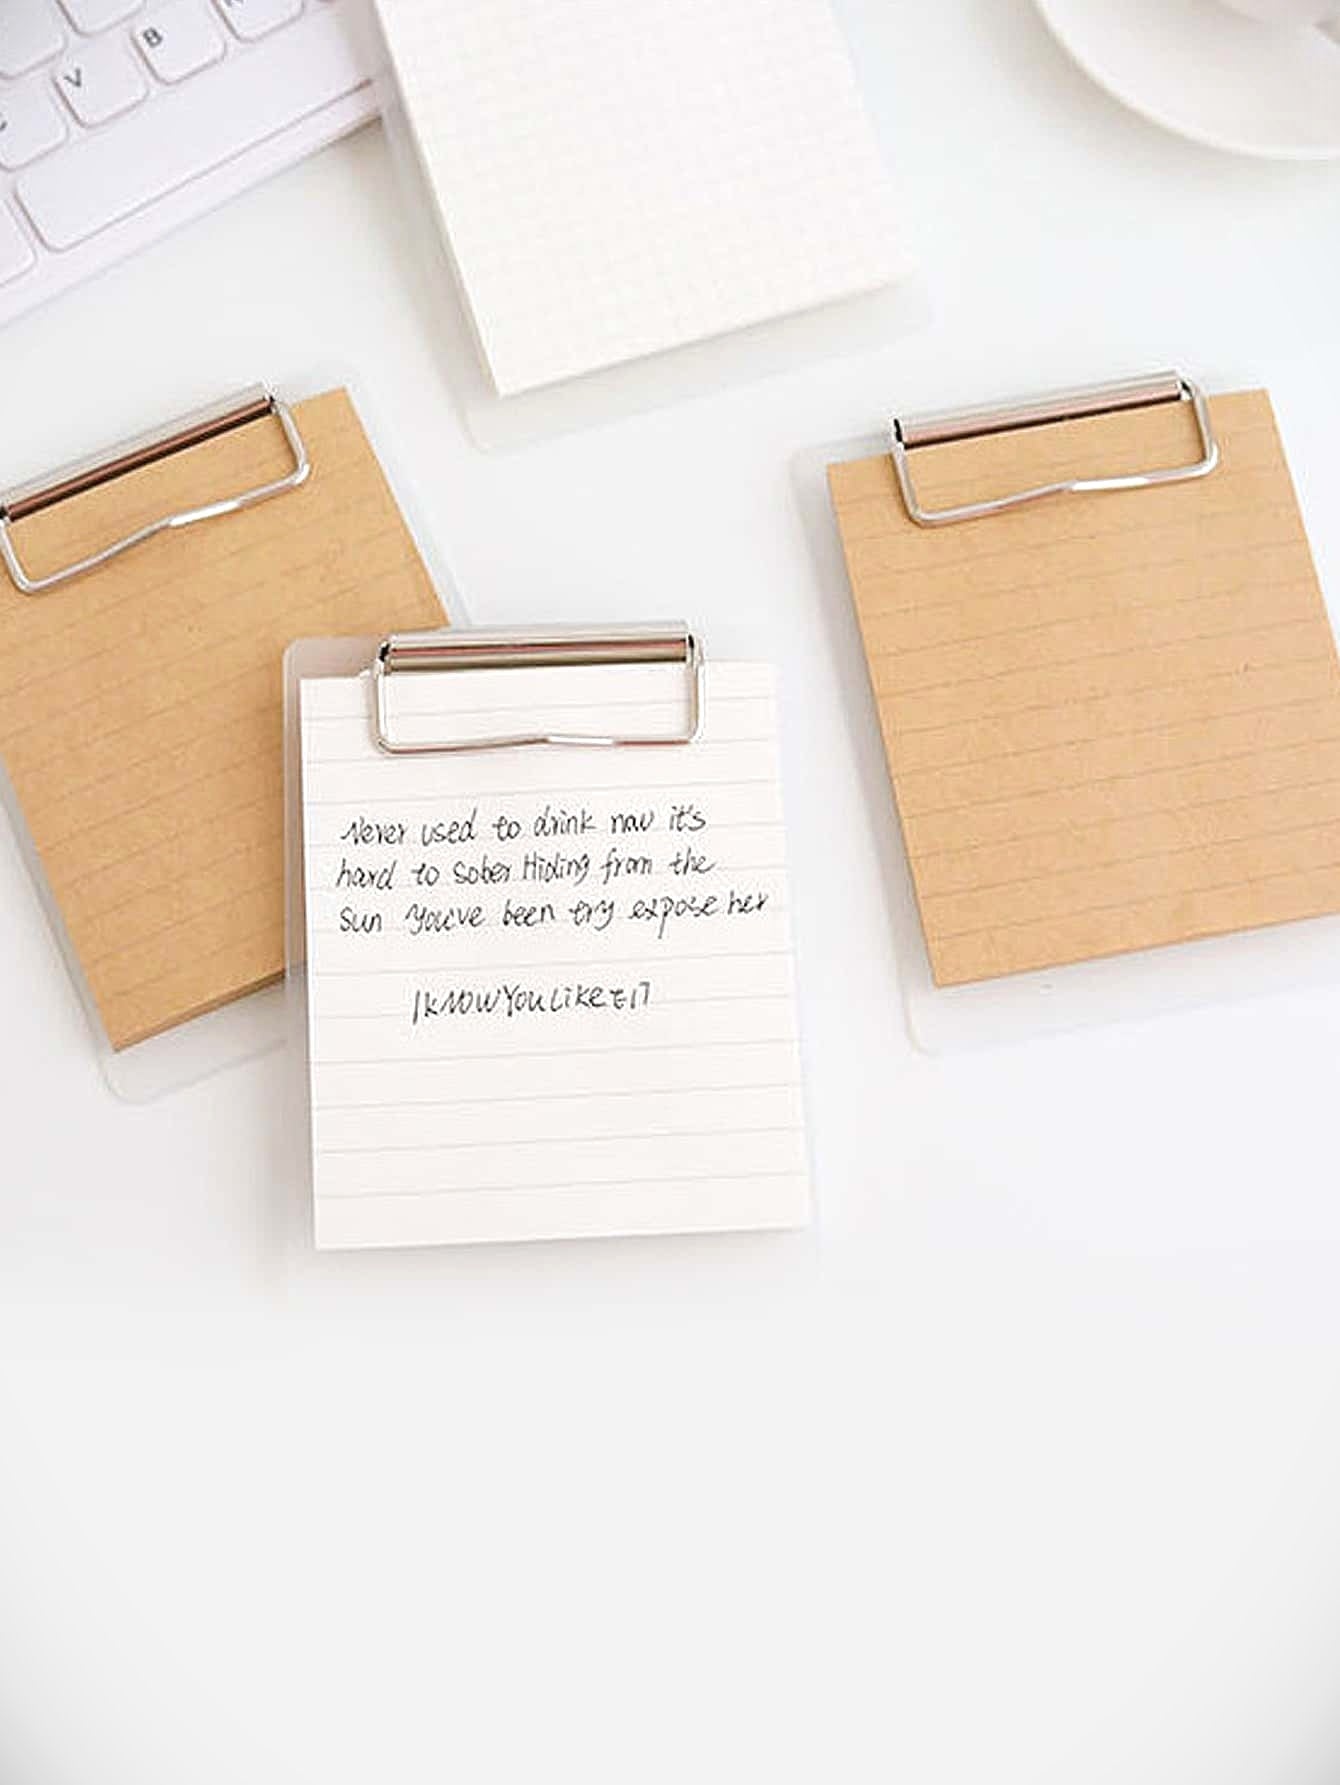 V B
Never used to drink nav it's
hard to sober Hiding from the
sun you've been try expose her
I KNOW YOU LIKE